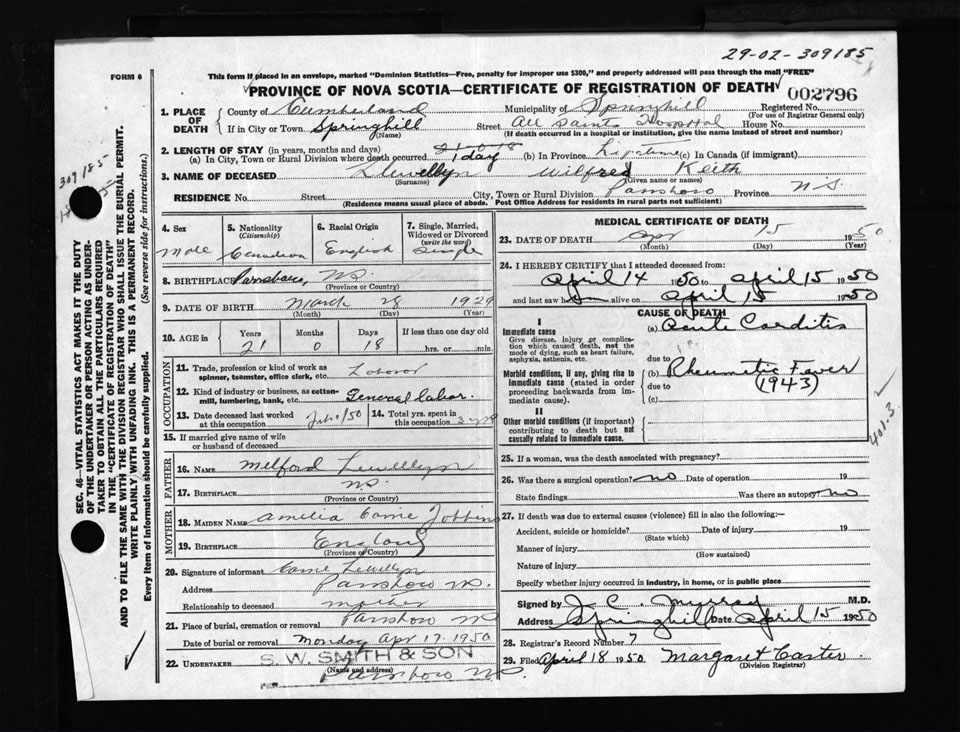 29-02-309185
FORM 6
This form if placed in an envelope, marked "Dominion Statistics—Free, penalty for improper use $300," and properly addressed will pass through the mail "FREE"
PROVINCE OF NOVA SCOTIA—CERTIFICATE OF REGISTRATION OF DEATH
002796
1. PLACE OF DEATH
County of Cumberland Municipality of Springhill Registered No.
(For use of Registrar General only)
If in City or Town Springhill Street All Saints Hospital House No.
(Name) (If death occurred in a hospital or institution, give the name instead of street and number)
2. LENGTH OF STAY (in years, months and days)
(a) In City, Town or Rural Division where death occurred 1 day (b) In Province Lifetime (c) In Canada (if immigrant)
3. NAME OF DECEASED Llewellyn Wilfred Keith
(Surname) (Given name or names)
RESIDENCE No. Street City, Town or Rural Division Parrsboro Province N.S.
(Residence means usual place of abode. Post Office Address for residents in rural parts not sufficient)
4. Sex Male
5. Nationality (Citizenship) Canadian
6. Racial Origin English
7. Single, Married, Widowed or Divorced (write the word) Single
8. BIRTHPLACE Parrsboro, N.S.
(Province or Country)
9. DATE OF BIRTH March 28 1929
(Month) (Day) (Year)
10. AGE in Years Months Days If less than one day
21 0 18 hrs. or min.
OCCUPATION
11. Trade, profession or kind of work as spinner, teamster, office clerk, etc. Laborer
12. Kind of industry or business, as cotton-mill, lumbering, bank, etc. General Labor
13. Date deceased last worked at this occupation /50
14. Total yrs. spent in this occupation
15. If married give name of wife or husband of deceased
FATHER
16. NAME Milford Llewellyn
17. BIRTHPLACE N.S.
(Province or Country)
MOTHER
18. MAIDEN NAME Amelia Carrie Jobbins
19. BIRTHPLACE England
(Province or Country)
20. Signature of informant Carrie Llewellyn
Address Parrsboro N.S.
Relationship to deceased mother
21. Place of burial, cremation or removal Parrsboro N.S.
Date of burial or removal Monday Apr 17. 1950
22. UNDERTAKER S. W. SMITH & SON
(Name and address)
Parrsboro N.S.
MEDICAL CERTIFICATE OF DEATH
23. DATE OF DEATH Apr 15 1950
(Month) (Day) (Year)
24. I HEREBY CERTIFY that I attended deceased from:
April 14 1950 to April 15 1950
and last saw him alive on April 15 1950
CAUSE OF DEATH
I
Immediate cause (a) Acute Carditis
Give disease, injury or complication which caused death, not the mode of dying, such as heart failure, asphyxia, asthenia, etc.
due to
Morbid conditions, if any, giving rise to immediate cause (stated in order proceeding backwards from immediate cause). (b) Rheumatic Fever
due to (1943)
(c)
II
Other morbid conditions (if important) contributing to death but not causally related to immediate cause.
401.3
25. If a woman, was the death associated with pregnancy?
26. Was there a surgical operation? no Date of operation 19
State findings Was there an autopsy? no
27. If death was due to external causes (violence) fill in also the following:—
Accident, suicide or homicide? Date of injury 19
(State which)
Manner of injury
(How sustained)
Nature of injury
Specify whether injury occurred in industry, in home, or in public place
Signed by J. C. Murray M.D.
Address Springhill Date April 15 1950
28. Registrar's Record Number 7
29. Filed April 18 1950 Margaret Carter
(Division Registrar)
SEC. 46—VITAL STATISTICS ACT MAKES IT THE DUTY
OF THE UNDERTAKER OR PERSON ACTING AS UNDER-
TAKER TO OBTAIN ALL THE PARTICULARS REQUIRED
IN THE "CERTIFICATE OF REGISTRATION OF DEATH"
AND TO FILE THE SAME WITH THE DIVISION REGISTRAR WHO SHALL ISSUE THE BURIAL PERMIT.
WRITE PLAINLY WITH UNFADING INK. THIS IS A PERMANENT RECORD.
Every item of information should be carefully supplied. (See reverse side for instructions.)
309185